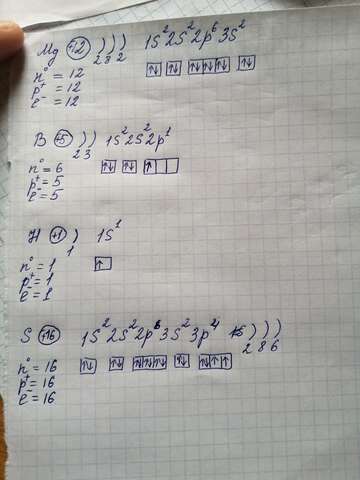 Mg +12 ) ) ) 1s² 2s² 2p⁶ 3s²
2 8 2
n⁰ = 12
p⁺ = 12
e⁻ = 12
B +5 ) ) 1s² 2s² 2p¹
2 3
n⁰ = 6
p⁺ = 5
e⁻ = 5
H +1 ) 1s¹
1
n⁰ = 1
p⁺ = 1
e⁻ = 1
S +16 1s² 2s² 2p⁶ 3s² 3p⁴ ) ) )
2 8 6
n⁰ = 16
p⁺ = 16
e⁻ = 16